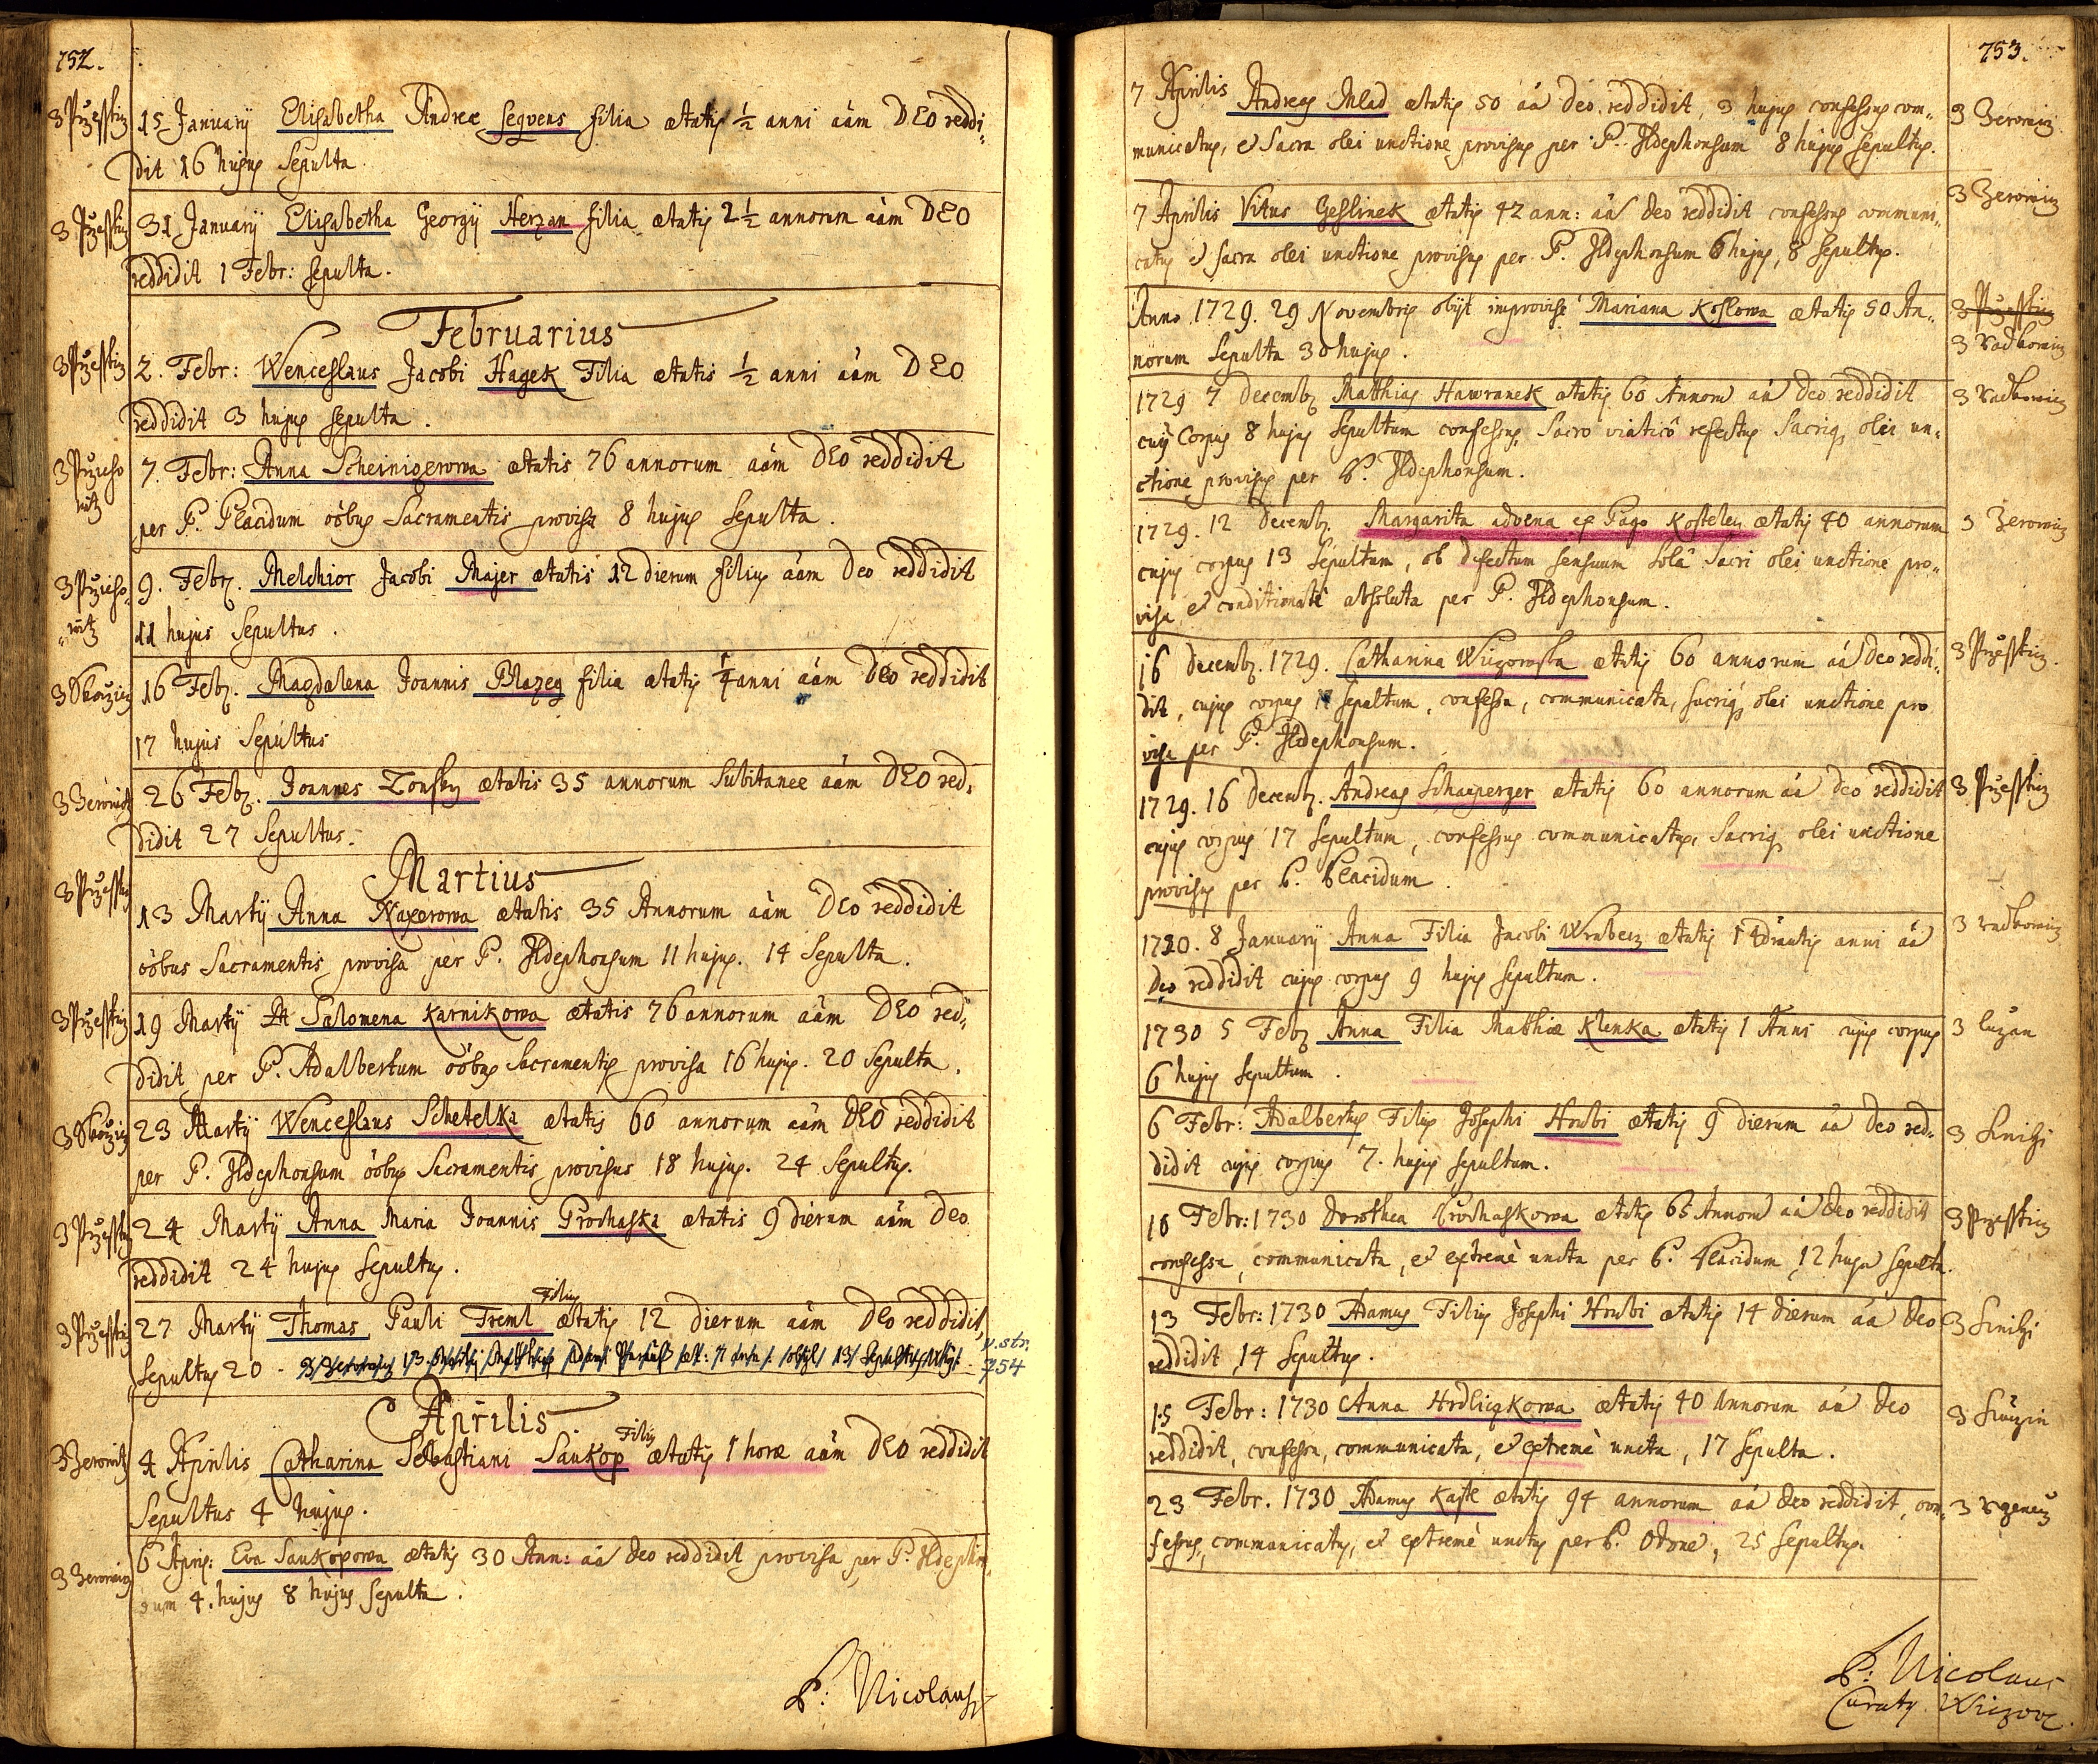 752.
3 Przesstiz 15 Januarÿ Elisabetha Andreæ Segvens filia ætatis ½ anni aam DEO reddi-
dit 16 hujus Sepulta.
3 Przesstiz 31 Januarÿ Elisabetha Georgÿ Herzan filia ætatis 2½ annorum aam DEO
reddidit 1 Febr: sepulta.
Februarius
3 Przesstiz 2. Febr: Wenceslaus Jacobi Hagek Filia ætatis ½ anni aam DEO
reddidit 3 hujus sepulta.
7. Febr: Anna Scheinigerowa ætatis 76 annorum aam DEO reddidit
per P. Placidum oöbus Sacramentis provisa 8 hujus Sepulta.
9. Febr. Melchior Jacobi Majer ætatis 12 dierum filius aam Deo reddidit
11 hujus Sepultus.
3 Skozic 16 Febr. Magdalena Joannis Blazeg filia ætatis ¼ anni aam Deo reddidit
17 hujus Sepultus
3 Zerowitz 26 Febr. Joannes Zonsky ætatis 35 annorum Subitanee aam DEO red-
didit 27 Sepultus.
Martius
3 Przesstiz 13 Martÿ Anna Naxerowa ætatis 35 Annorum aam Deo reddidit
oöbus Sacramentis provisa per P. Ildephonsum 11 hujus. 14 Sepulta.
3 Przesstiz 19 Martÿ Salomena Karnikowa ætatis 76 annorum aam DEO red-
didit per P. Adalbertum oöbus Sacramentis provisa 16 hujus. 20 Sepulta.
3 Skozic 23 Martÿ Wenceslaus Schetelka ætatis 60 annorum aam DEO reddidit
per P. Ildephonsum oöbus Sacramentis provisus 18 hujus. 24 Sepultus.
3 Przesstiz 24 Martÿ Anna Maria Joannis Prochaska ætatis 9 dierum aam Deo
reddidit 24 hujus sepultus.
Filius
3 Przesstiz 27 Martÿ Thomas Pauli Freml ætatis 12 dierum aam Deo reddidit,
Sepultus 20
v. str. 754
Aprilis
Filius
3 Zerowitz 4 Aprilis Catharina Sebastiani Saukop ætatis 1 horæ aam DEO reddidit
Sepultus 4 hujus.
3 Zerowiz 6 Apris: Eva Saukopowa ætatis 30 Ann: aa Deo reddidit provisa per P. Ildephon-
sum 4. hujus 8 hujus Sepulta.
P: Nicolaus
753.
7 Aprilis Andreas Mlad ætatis 50 aa Deo reddidit, 3 hujus confessus com- 3 Zerowiz
municatus, et Sacra olei unctione provisus per P. Ildephonsum 8 hujus sepultus.
7 Aprilis Vitus Geslinek ætatis 42 ann: aa Deo reddidit confessus communi- 3 Zerowiz
catus et sacra olei unctione provisus per P. Ildephonsum 6 hujus, 8 Sepultus.
Anno 1729. 29 Novembris obÿt improvise Mariana Koslowa ætatis 50 An- 3 Przesstiz
norum Sepulta 30 hujus. 3 Radkowiz
1729 7 Decemb. Matthias Hawranek ætatis 60 Annorū aa Deo reddidit 3 Radkowiz
cujus Corpus 8 hujus Sepultum confessus, Sacro viatico refectus Sacriq olei un-
ctione provisus per P. Ildephonsum.
1729. 12 Decemb. Margarita advena ex Pago Kostelez ætatis 40 annorum 3 Zerowiz
cujus corpus 13 Sepultum, ob defectum sensuum Sola Sacri olei unctione pro-
visa et conditionatè absoluta per P. Ildephonsum.
16 Decemb. 1729. Catharina Wiezowska ætatis 60 annorum aa Deo reddi- 3 Przesstiz.
dit, cujus corpus sepultum, confessa, communicata, sacriq olei unctione pro
visa per P. Ildephonsum.
1729. 16 Decemb. Andreas Schasperger ætatis 60 annorum aa Deo reddidit 3 Przesstiz
cujus corpus 17 Sepultum, confessus communicatus, Sacriq olei unctione
provisus per P. Placidum.
1730. 8 Januarÿ Anna Filia Jacobi Wrabecz ætatis 1 4drantis anni aa 3 Radkowiz
Deo reddidit cujus corpus 9 hujus sepultum.
1730 5 Feb. Anna Filia Mathiæ Klenka ætatis 1 Anni cujus corpus 3 Luzan
6 hujus sepultum.
6 Febr: Adalbertus Filius Josephi Hrubi ætatis 9 dierum aa Deo red- 3 Snihi
didit cujus corpus 7. hujus sepultum.
10 Febr: 1730 Dorothea Prochaskowa ætatis 65 Annorū aa Deo reddidit 3 Przesstiz
confessa, communicata, et extremè uncta per P. Placidum, 12 hujus sepulta.
13 Febr: 1730 Adamus Filius Josephi Hrubi ætatis 14 dierum aa Deo 3 Snihi
reddidit, 14 Sepultus.
15 Febr: 1730 Anna Hrdliczkowa ætatis 40 Annorum aa Deo
reddidit, confessa, communicata, et extremè uncta, 17 Sepulta.
23 Febr. 1730 Adamus Kaste ætatis 94 annorum aa Deo reddidit, con-
fessus, communicatus, et extremè unctus per P. Otone, 25 sepultus.
P: Nicolaus
Curatus Wiczow.